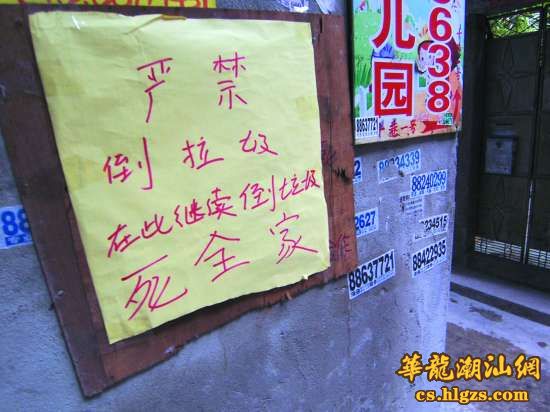 严禁
倒拉圾
在此继续倒垃圾
死全家
儿园
638
88637721
34339
88240299
2627
234515
88637721
88422935
88
華龍潮汕網
cs.hlgzs.com